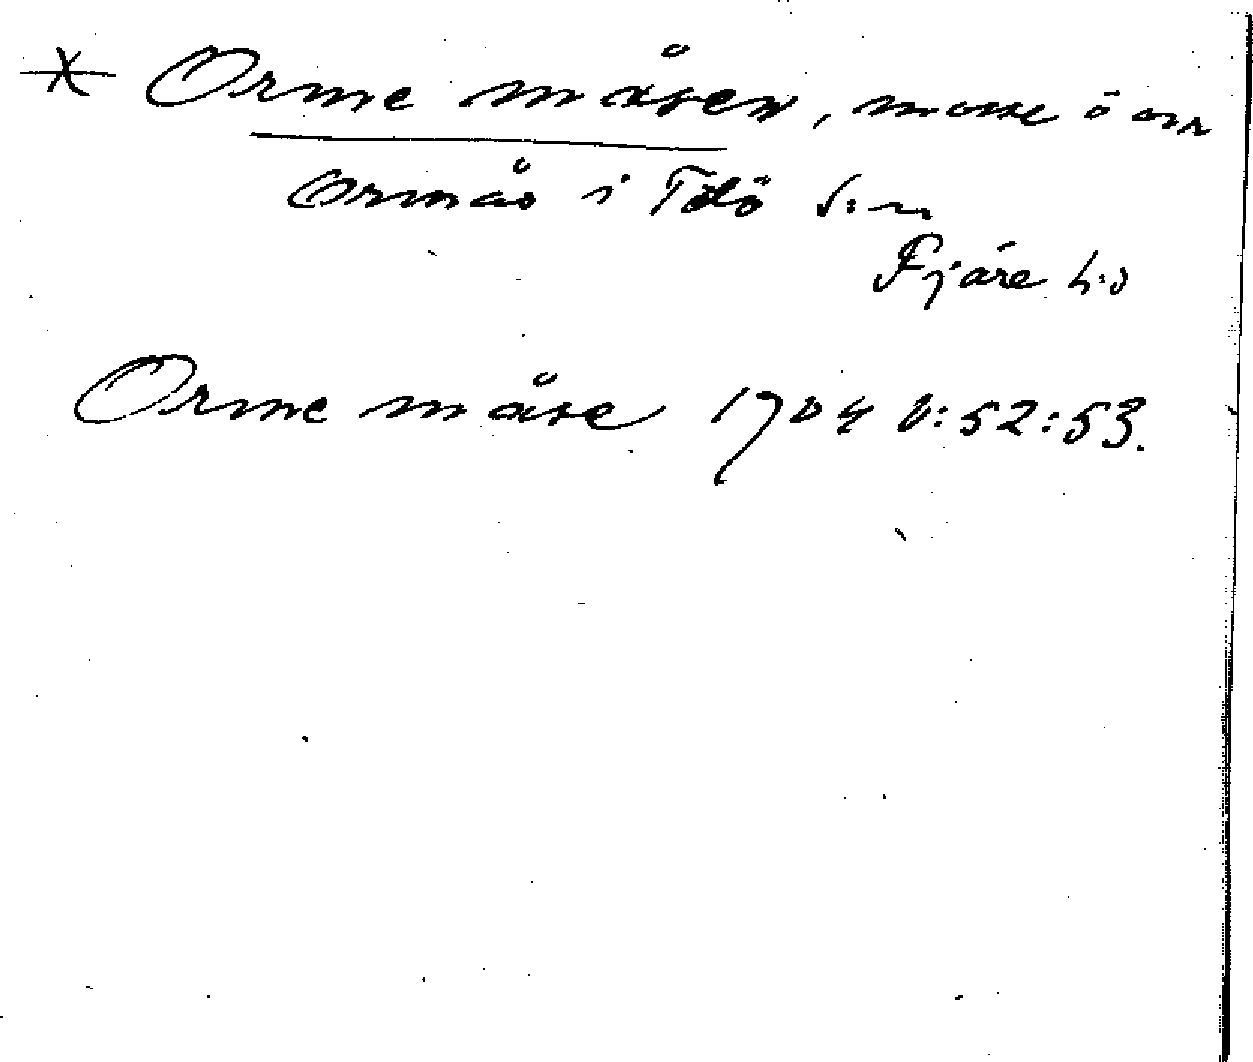 * Orme måsen, mosse ö om
Ormås i Tölö s:n
Fjäre h:d
Orme måse 1704 V:52:53.